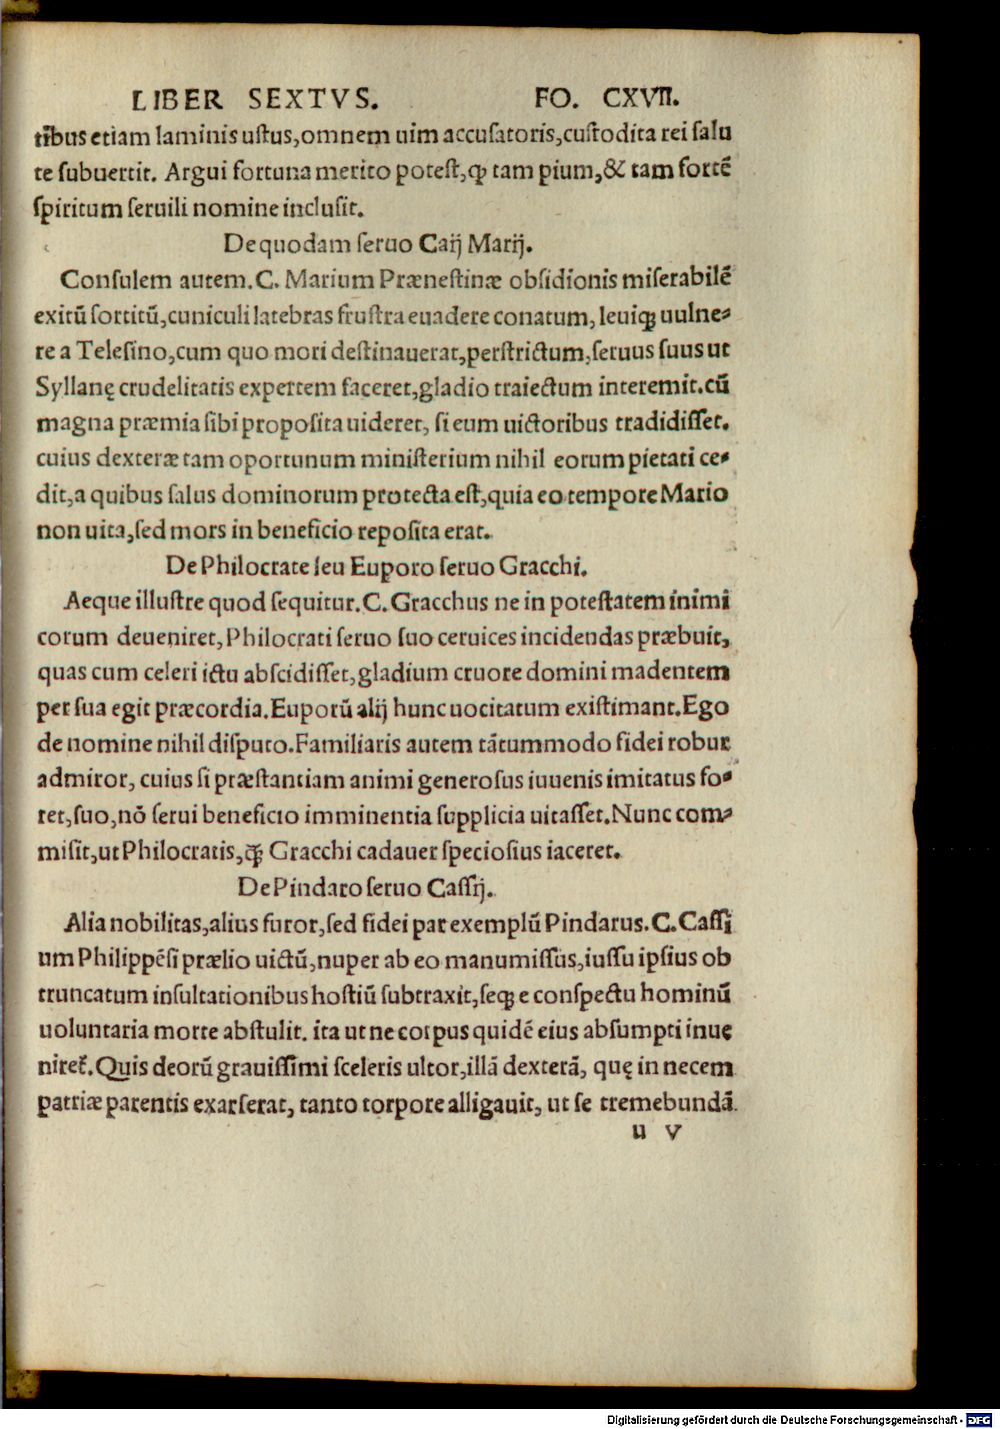 LIBER SEXTVS. FO. CXVII.
tibus etiam laminis uſtus,omnem uim accuſatoris,cuſtodita rei ſalu
te ſubuertit. Argui fortuna merito poteſt,ꝙ tam pium,& tam fortē
ſpiritum ſeruili nomine incluſit.
De quodam ſeruo Caij Marij.
Conſulem autem.C. Marium Præneſtinæ obſidionis miſerabilē
exitū ſortitū,cuniculi latebras fruſtra euadere conatum, leuiqȝ uulne⸗
re a Teleſino,cum quo mori deſtinauerat,perſtrictum,ſeruus ſuus ut
Syllanę crudelitatis expertem faceret,gladio traiectum interemit.cū
magna præmia ſibi propoſita uideret, ſi eum uictoribus tradidiſſet.
cuius dexteræ tam oportunum miniſterium nihil eorum pietati ce⸗
dit,a quibus ſalus dominorum protecta eſt,quia eo tempore Mario
non uita,ſed mors in beneficio repoſita erat.
De Philocrate ſeu Euporo ſeruo Gracchi.
Aeque illuſtre quod ſequitur.C.Gracchus ne in poteſtatem inimi
corum deueniret,Philocrati ſeruo ſuo ceruices incidendas præbuit,
quas cum celeri ictu abſcidiſſet,gladium cruore domini madentem
per ſua egit præcordia.Euporū alij hunc uocitatum exiſtimant.Ego
de nomine nihil diſputo.Familiaris autem tātummodo fidei robur
admiror, cuius ſi præſtantiam animi generoſus iuuenis imitatus fo⸗
ret,ſuo,nō ſerui beneficio imminentia ſupplicia uitaſſet.Nunc com⸗
miſit,ut Philocratis,ꝗ̄ȝ Gracchi cadauer ſpecioſius iaceret.
De Pindaro ſeruo Caſſij.
Alia nobilitas,alius furor,ſed fidei par exemplū Pindarus.C.Caſſi
um Philippēſi prælio uictū,nuper ab eo manumiſſus,iuſſu ipſius ob
truncatum inſultationibus hoſtiū ſubtraxit,ſeqȝ e conſpectu hominū
uoluntaria morte abſtulit. ita ut ne corpus quidē eius abſumpti inue
niret̄.Quis deorū grauiſſimi ſceleris ultor,illā dexterā, quę in necem
patriæ parentis exarſerat, tanto torpore alligauit, ut ſe tremebundā
u v
Digitalisierung gefördert durch die Deutsche Forschungsgemeinschaft - DFG